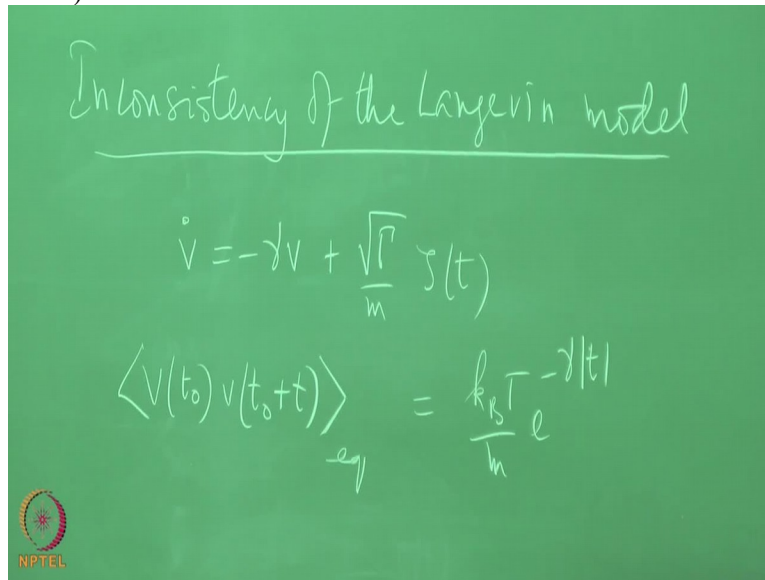 Inconsistency of the Langevin model
v̇ = -γv + √Γ/m ζ(t)
⟨v(t₀) v(t₀+t)⟩_eq = k_BT/m e^{-γ|t|}
NPTEL